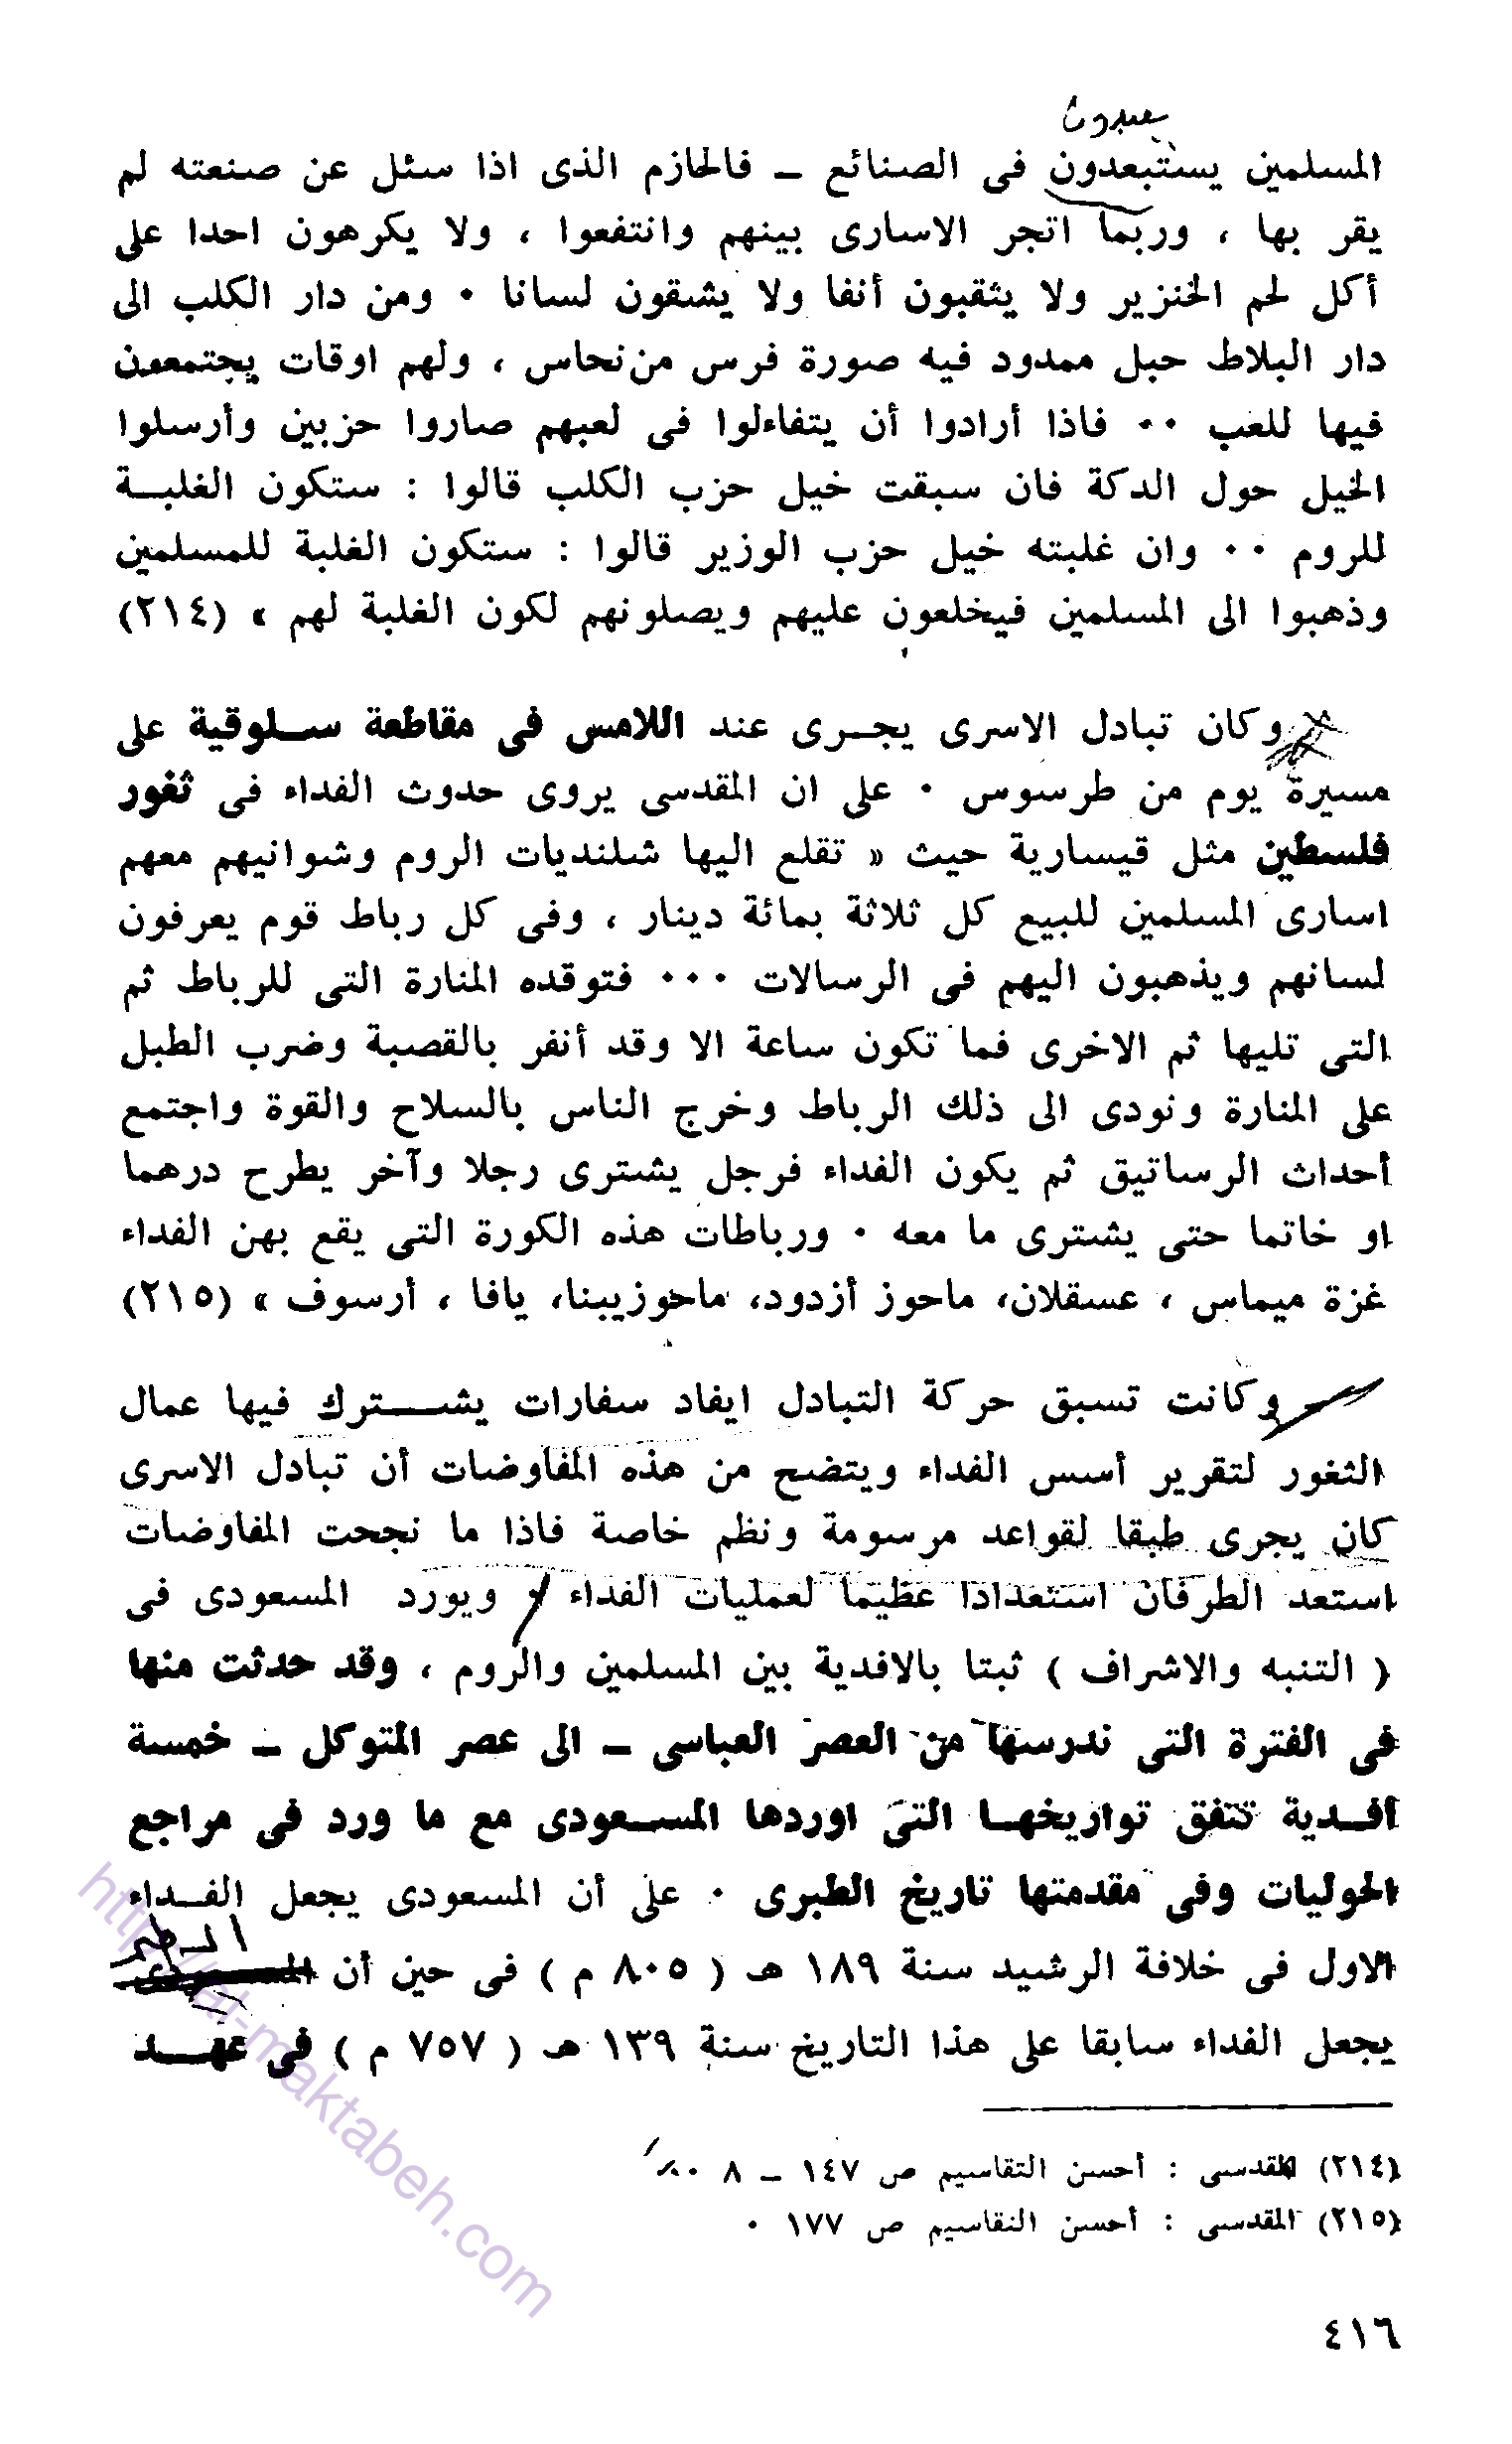 عبدون
المسلمين يستبعدون فى الصنائع ــ فالحازم الذى اذا سئل عن صنعته لم
يقر بها ، وربما اتجر الاسارى بينهم وانتفعوا ، ولا يكرهون احدا على
أكل لحم الخنزير ولا يثقبون أنفا ولا يشقون لسانا ٠ ومن دار الكلب الى
دار البلاط حبل ممدود فيه صورة فرس من نحاس ، ولهم اوقات يجتمعون
فيها للعب ٠٠ فاذا أرادوا أن يتفاءلوا فى لعبهم صاروا حزبين وأرسلوا
الخيل حول الدكة فان سبقت خيل حزب الكلب قالوا : ستكون الغلبــة
للروم ٠٠ وان غلبته خيل حزب الوزير قالوا : ستكون الغلبة للمسلمين
وذهبوا الى المسلمين فيخلعون عليهم ويصلونهم لكون الغلبة لهم » (٢١٤)
وكان تبادل الاسرى يجــرى عند اللامس فى مقاطعة ســلوقية على
مسيرة يوم من طرسوس ٠ على ان المقدسى يروى حدوث الفداء فى ثغور
فلسطين مثل قيسارية حيث « تقلع اليها شلنديات الروم وشوانيهم معهم
اسارى المسلمين للبيع كل ثلاثة بمائة دينار ، وفى كل رباط قوم يعرفون
لسانهم ويذهبون اليهم فى الرسالات ٠٠٠ فتوقده المنارة التى للرباط ثم
التى تليها ثم الاخرى فما تكون ساعة الا وقد أنفر بالقصبة وضرب الطبل
على المنارة ونودى الى ذلك الرباط وخرج الناس بالسلاح والقوة واجتمع
أحداث الرساتيق ثم يكون الفداء فرجل يشترى رجلا وآخر يطرح درهما
او خاتما حتى يشترى ما معه ٠ ورباطات هذه الكورة التى يقع بهن الفداء
غزة ميماس ، عسقلان، ماحوز أزدود، ماحوزيبنا، يافا ، أرسوف » (٢١٥)
وكانت تسبق حركة التبادل ايفاد سفارات يشــــترك فيها عمال
الثغور لتقرير أسس الفداء ويتضح من هذه المفاوضات أن تبادل الاسرى
كان يجرى طبقا لقواعد مرسومة ونظم خاصة فاذا ما نجحت المفاوضات
استعد الطرفان استعدادا عظيما لعمليات الفداء ٠ ويورد المسعودى فى
( التنبه والاشراف ) ثبتا بالافدية بين المسلمين والروم ، وقد حدثت منها
فى الفترة التى ندرسها من العصر العباسى ــ الى عصر المتوكل ــ خمسة
أفــدية تتفق تواريخهــا التى اوردها المســعودى مع ما ورد فى مراجع
الحوليات وفى مقدمتها تاريخ الطبرى ٠ على أن المسعودى يجعل الفــداء
الاول فى خلافة الرشيد سنة ١٨٩ هـ ( ٨٠٥ م ) فى حين أن
يجعل الفداء سابقا على هذا التاريخ سنة ١٣٩ هـ ( ٧٥٧ م ) فى عهــــد
(٢١٤) المقدسى : أحسن التقاسيم ص ١٤٧ ــ ٨ ٠
(٢١٥) المقدسى : أحسن التقاسيم ص ١٧٧ ٠
٤١٦